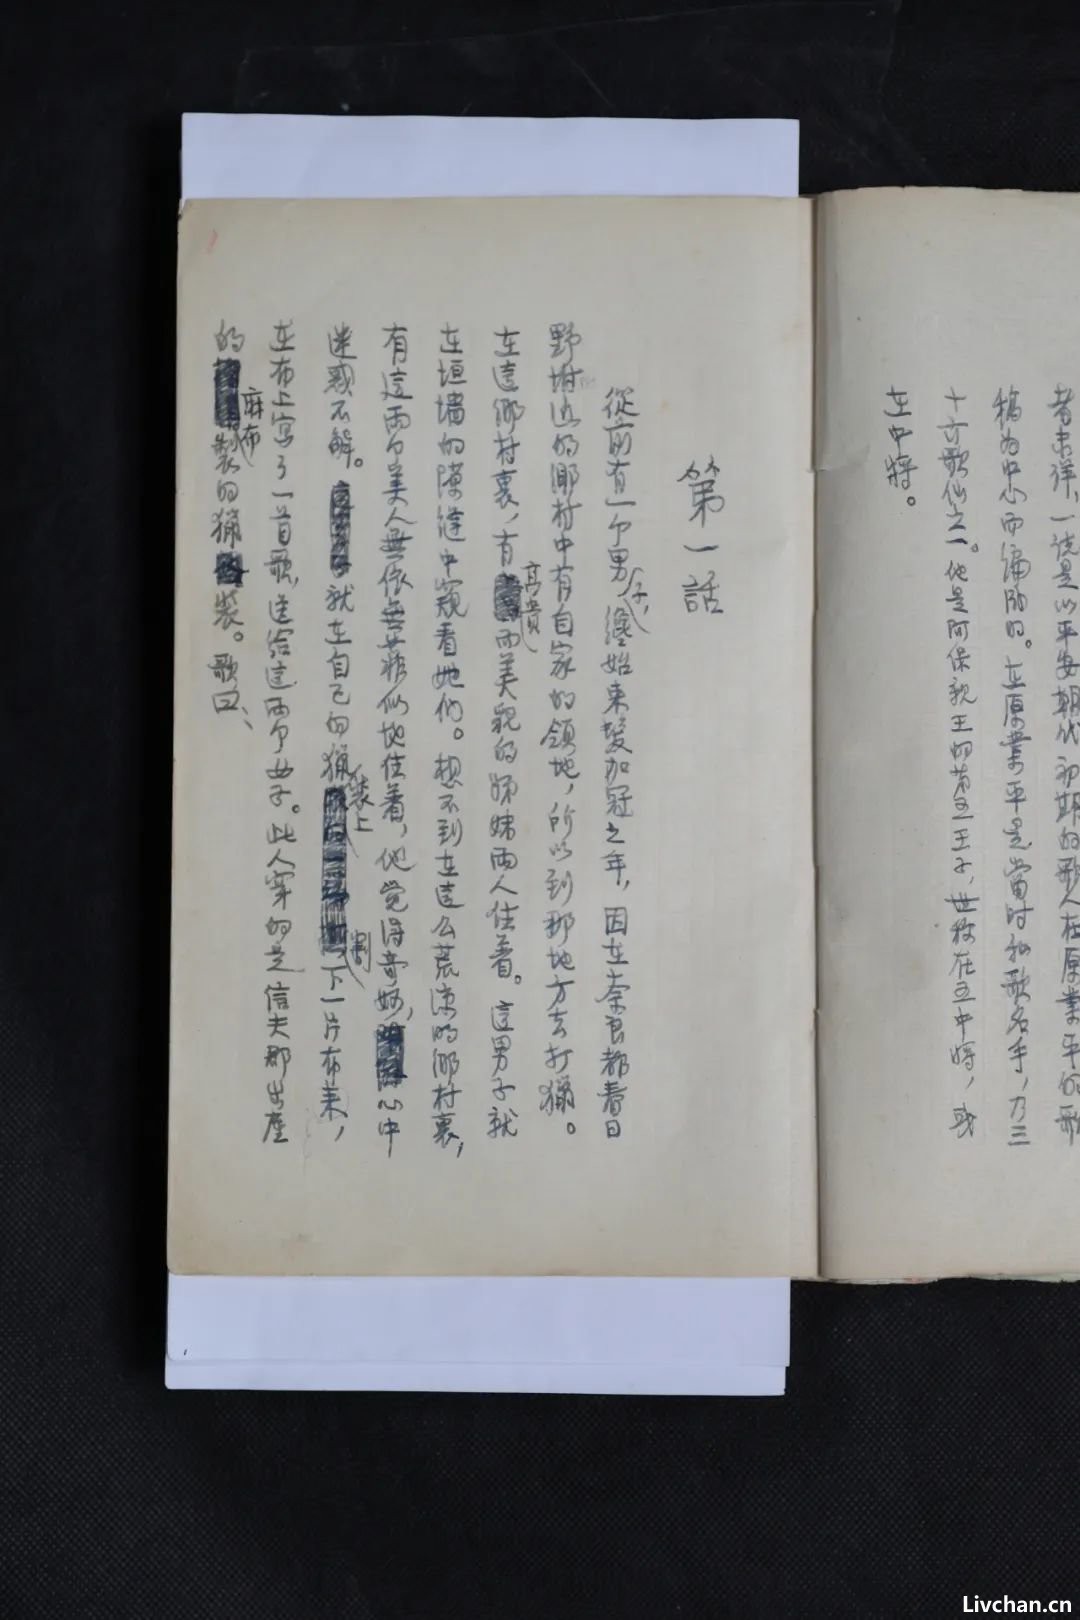 者未详，一说是以平安朝代初期的歌人在原業平的歌
稿为中心而编成的。在原業平是当时和歌名手，乃三
十六歌仙之一。他是阿保親王的第五王子，世称在五中将，或
在中将。
第一話
從前有一个男子，纔始束髮加冠之年，因在奈良都春日
野附近的鄉村中有自家的领地，所以到那地方去打獵。
在這鄉村裏，有高貴而美貌的姊妹兩人住着。這男子就
在垣墙的隙缝中窺看她们。想不到在這么荒凉的鄉村裏，
有這兩个美人無依無靠似地住着，他觉得奇妙，心中
迷惑不解。就在自己的獵装上割下一片布来，
在布上寫了一首歌，送给這兩个女子。此人穿的是信夫郡出産
的麻布製的獵装。歌曰、
Livchan.cn